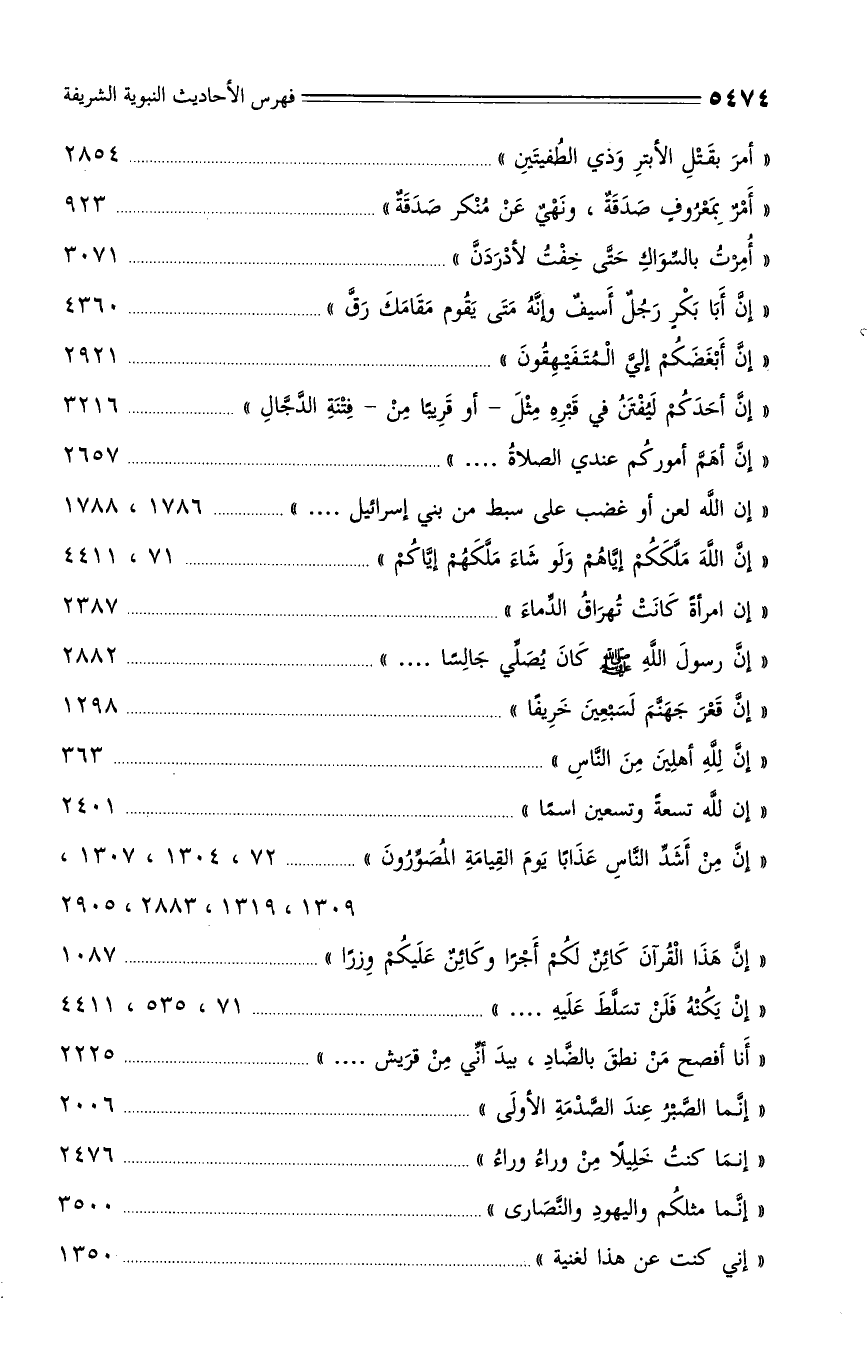 ٥٤٧٤ فهرس الأحاديث النبوية الشريفة
« أمرَ بقَتْلِ الأبترِ وَذي الطُفيتَينِ » ٢٨٥٤
« أَمْرٌ بِمَعْرُوفٍ صَدَقَةٌ ، ونَهْيٌ عَنْ مُنْكر صَدَقَةٌ » ٩٢٣
« أُمِرْتُ بالسِّوَاكِ حَتَّى خِفْتُ لأدْرَدَنَّ » ٣٠٧١
« إنَّ أَبَا بَكْرٍ رَجُلٌ أَسيفٌ وإنَّهُ مَتَى يَقُوم مَقَامَكَ رَقَّ » ٤٣٦٠
« إنَّ أَبْغَضَكُمْ إليَّ الْمُتَفَيْهِقُونَ » ٢٩٢١
« إنَّ أحَدَكُمْ لَيُفْتَنُ في قَبْرِهِ مِثْلَ – أو قَرِيبًا مِنْ – فِتْنَةِ الدَّجَّالِ » ٣٢١٦
« إنَّ أهَمَّ أموركُم عندي الصلاةُ .... » ٢٦٥٧
« إن اللَّه لعن أو غضب على سبط من بني إسرائيل .... » ١٧٨٦ ، ١٧٨٨
« إنَّ اللَّهَ مَلَّكَكُمْ إيَّاهُمْ وَلَو شَاءَ مَلَّكَهُمْ إيَّاكُمْ » ٧١ ، ٤٤١١
« إن امرأةً كَانَتْ تُهرَاقُ الدِّماءَ » ٢٣٨٧
« إنَّ رسولَ اللَّهِ ﷺ كَانَ يُصَلِّي جَالِسًا .... » ٢٨٨٢
« إنَّ قَعْرَ جَهَنَّمَ لَسَبْعِينَ خَرِيفًا » ١٢٩٨
« إنَّ لِلَّهِ أهلِينَ مِنَ النَّاسِ » ٣٦٣
« إن للَّه تسعةً وتسعين اسمًا » ٢٤٠١
« إنَّ مِنْ أَشَدِّ النَّاسِ عَذَابًا يَومَ القِيامَةِ الْمُصَوِّرُونَ » ٧٢ ، ١٣٠٤ ، ١٣٠٧ ،
١٣٠٩ ، ١٣١٩ ، ٢٨٨٣ ، ٢٩٠٥
« إنَّ هَذَا الْقُرآنَ كَائِنٌ لَكُمْ أَجْرًا وكَائِنٌ عَلَيكُمْ وِزرًا » ١٠٨٧
« إنْ يَكُنْهُ فَلَنْ تسَلَّطَ عَلَيهِ .... » ٧١ ، ٥٣٥ ، ٤٤١١
« أَنا أفصح مَنْ نطقَ بالضَّادِ ، بيدَ أنِّي مِنْ قرَيش .... » ٢٢٢٥
« إنَّما الصَّبْرُ عِندَ الصَّدْمَةِ الأولَى » ٢٠٠٦
« إنمَا كنتُ خَلِيلًا مِنْ وراءُ وراءُ » ٢٤٧٦
« إنَّما مثلكُم واليهودِ والنَّصَارى » ٣٥٠٠
« إني كنت عن هذا لغنية » ١٣٥٠